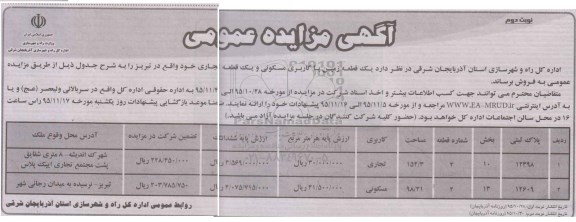 نوبت دوم
آگهی مزایده عمومی
اداره کل راه و شهرسازی استان آذربایجان شرقی در نظر دارد یک قطعه زمین با کاربری مسکونی و یک قطعه تجاری خود واقع در تبریز را به شرح جدول ذیل از طریق مزایده
عمومی به فروش برساند.
متقاضیان محترم می توانند جهت کسب اطلاعات بیشتر و اخذ اسناد شرکت در مزایده از مورخه ۹۵/۱۰/۲۸ الی ۹۵/۱۱/۴ به اداره حقوقی اداره کل واقع در سربالائی ولیعصر (عج) و یا
به آدرس اینترنتی WWW.EA-MRUD.IR مراجعه و از مورخه ۹۵/۱۱/۵ الی ۹۵/۱۱/۱۶ پیشنهادات خود را ارائه نمایند. ضمنا موعد بازگشایی پیشنهادات روز یکشنبه مورخه ۹۵/۱۱/۱۷ راس ساعت
۱۶ در محل سالن اجتماعات اداره کل خواهد بود. (حضور کلیه شرکت کنندگان در جلسه مزایده آزاد می باشد)
ردیف پلاک ثبتی بخش شماره قطعه مساحت کاربری ارزش پایه هر متر مربع ارزش پایه ششدانگ تضمین شرکت در مزایده آدرس محل وقوع ملک
۱ ۱۲۳۹۸ ۱۰ ۲ ۱۵۲/۳ تجاری ۳۰/۰۰۰/۰۰۰ ۴/۵۶۹/۰۰۰/۰۰۰ ۲۲۸/۴۵۰/۰۰۰ ریال شهرک اندیشه - ۸ متری شقایق
پشت مجتمع تجاری ایپک پلاس
۲ ۱۲۶۰۹ ۱۳ ۴ ۹۸/۳۱ مسکونی ۴۱/۵۰۰/۰۰۰ ریال ۴/۰۷۵/۷۱۵/۰۰۰ ریال ۲۰۳/۷۸۵/۷۵۰ ریال تبریز - نرسیده به میدان رجائی شهر
روابط عمومی اداره کل راه و شهرسازی استان آذربایجان شرقی